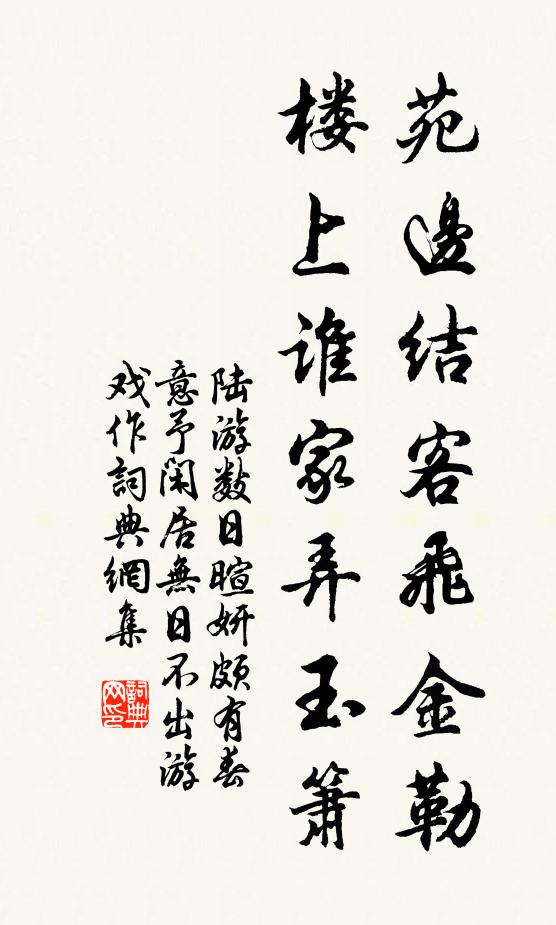 苑邊结客飛金勒
楼上谁家弄玉箫
陆游数日暄妍颇有春
意予闲居無日不出游
戏作詞典網集
詞典
网印